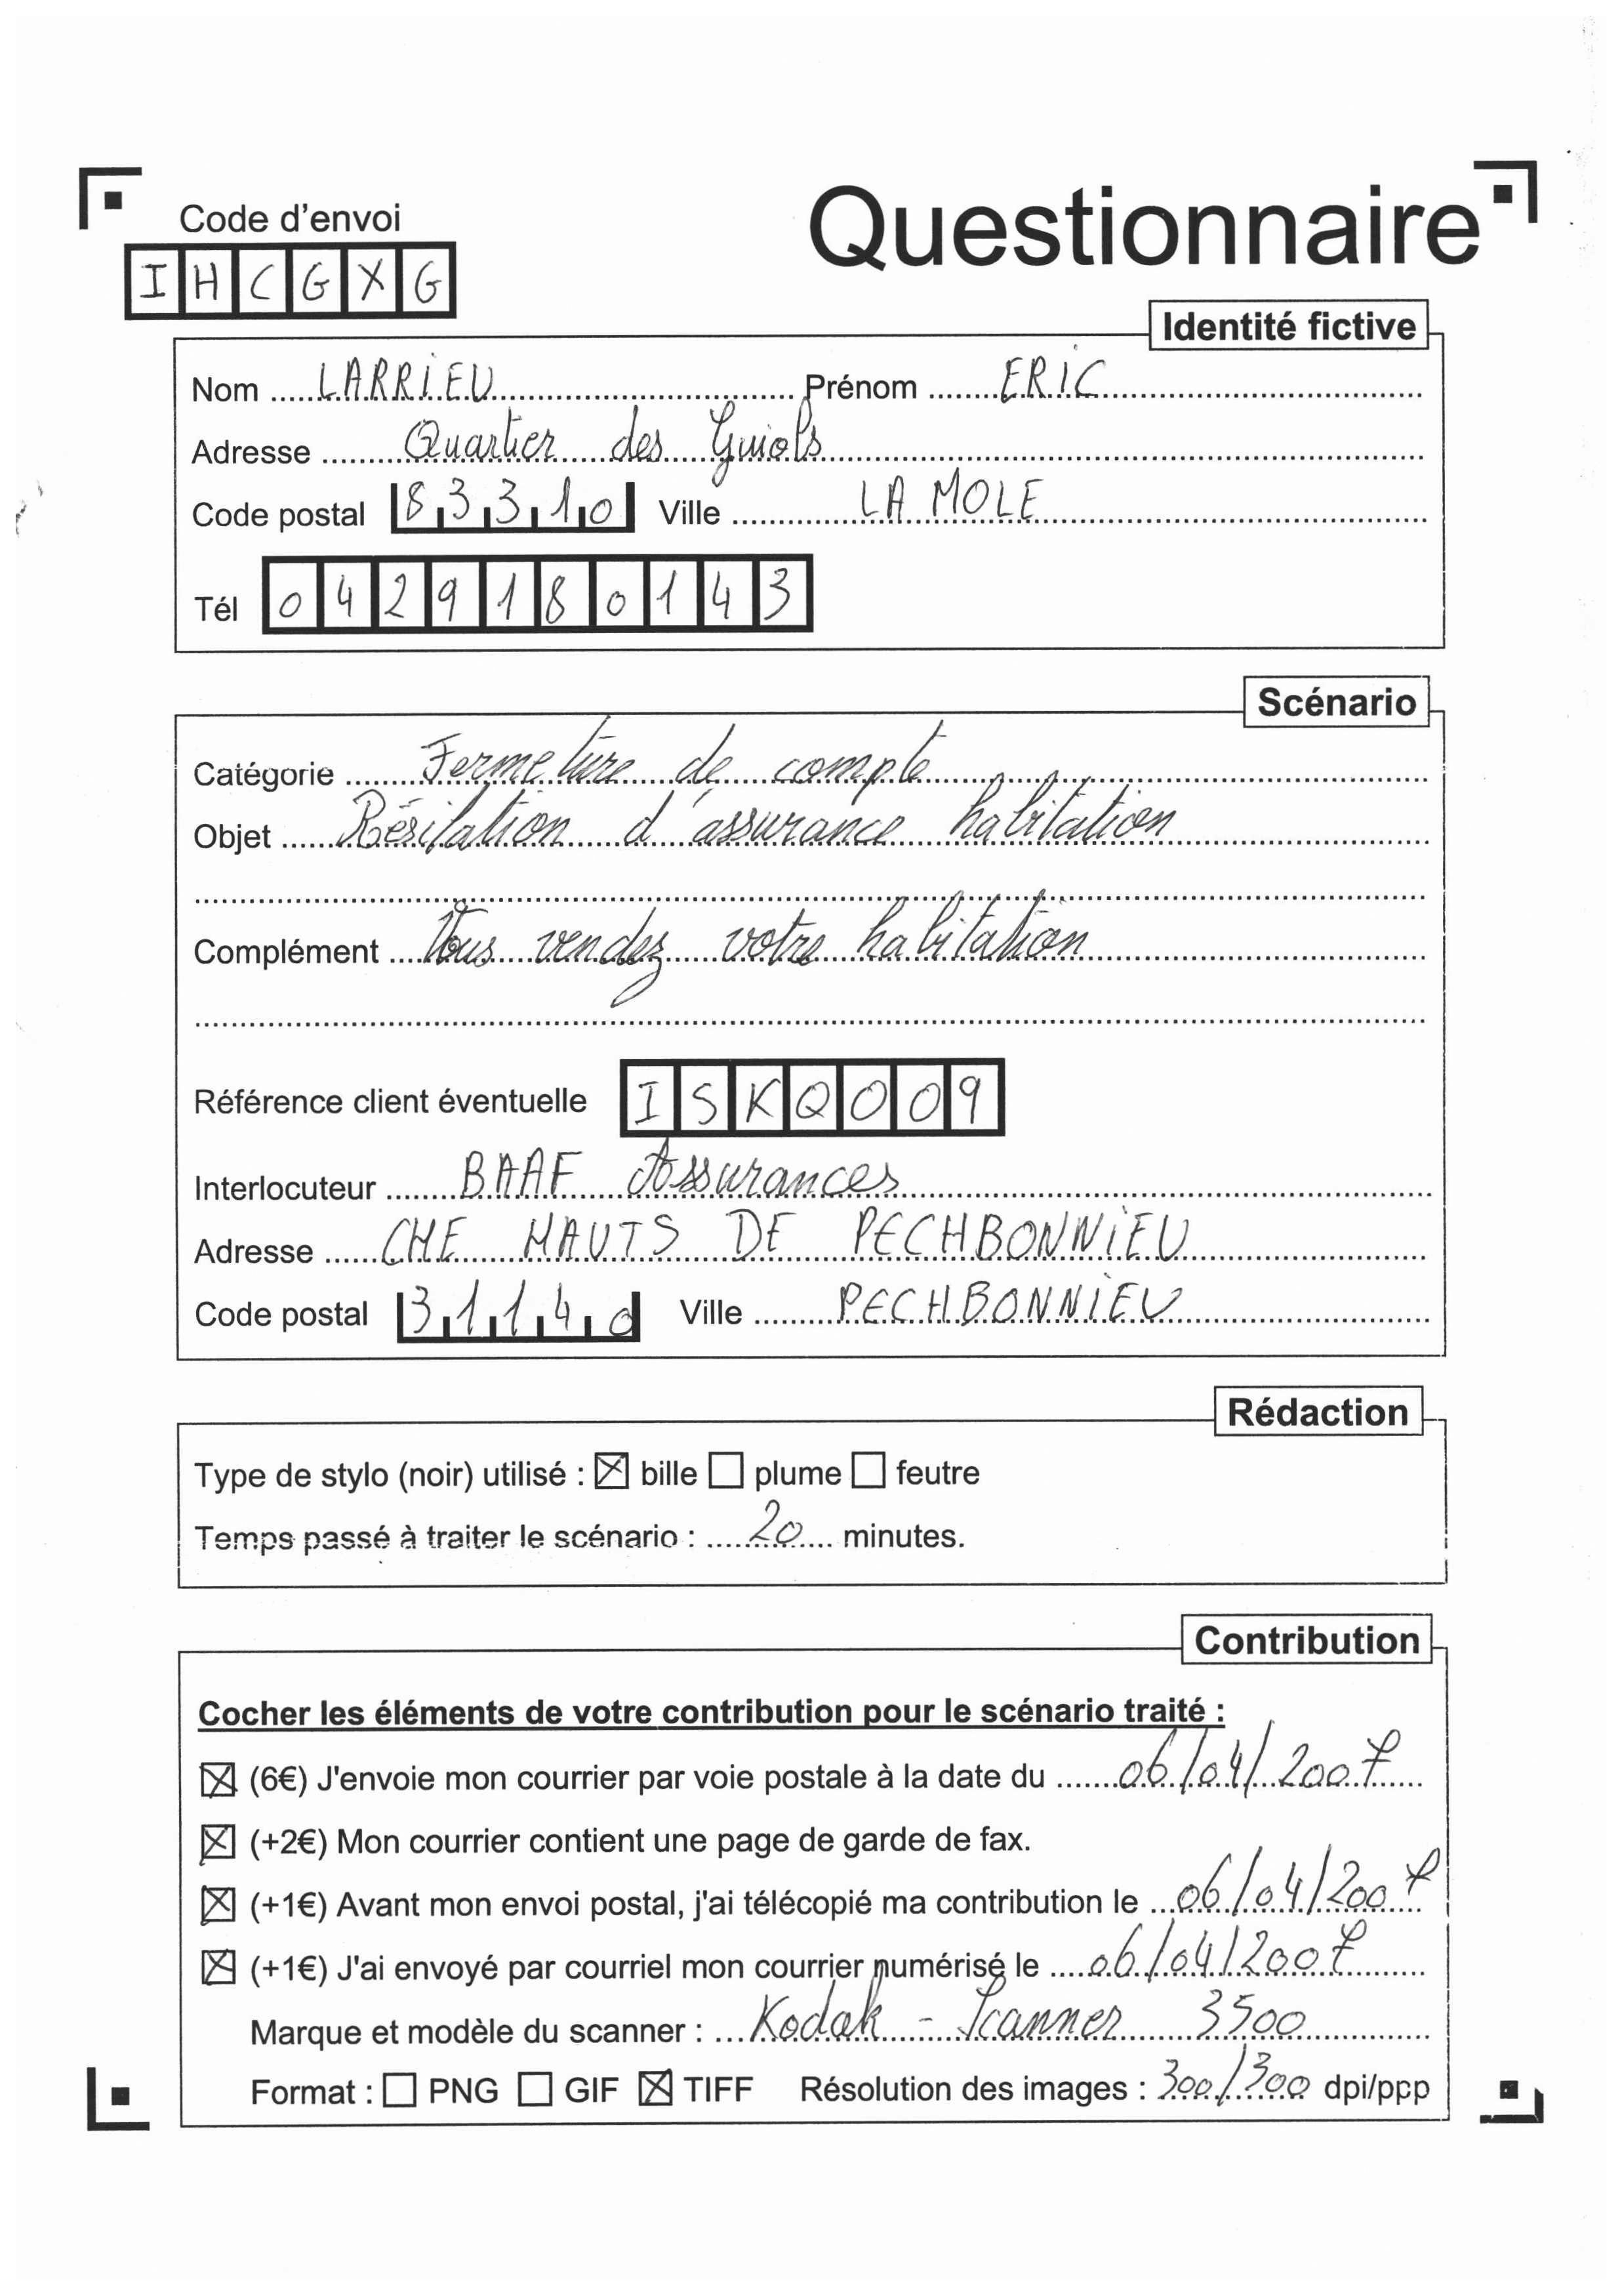 Code d'envoi
Questionnaire
IHCGXG
Identité fictive
Nom LARRIEU Prénom ERIC
Adresse Quartier des Guiols
Code postal 83310 Ville LA MOLE
Tél 0429180143
Scénario
Catégorie Fermeture de compte
Objet Résilation d'assurance habitation
Complément Vous vendez votre habitation
Référence client éventuelle ISKQ009
Interlocuteur BAAF Assurances
Adresse CHE HAUTS DE PECHBONNIEU
Code postal 31140 Ville PECHBONNIEU
Rédaction
Type de stylo (noir) utilisé : ☒ bille ☐ plume ☐ feutre
Temps passé à traiter le scénario : 20 minutes.
Contribution
Cocher les éléments de votre contribution pour le scénario traité :
☒ (6€) J'envoie mon courrier par voie postale à la date du 06/04/2007
☒ (+2€) Mon courrier contient une page de garde de fax.
☒ (+1€) Avant mon envoi postal, j'ai télécopié ma contribution le 06/04/2007
☒ (+1€) J'ai envoyé par courriel mon courrier numérisé le 06/04/2007
Marque et modèle du scanner : Kodak - Scanner 3500
Format : ☐ PNG ☐ GIF ☒ TIFF Résolution des images : 300/300 dpi/ppp